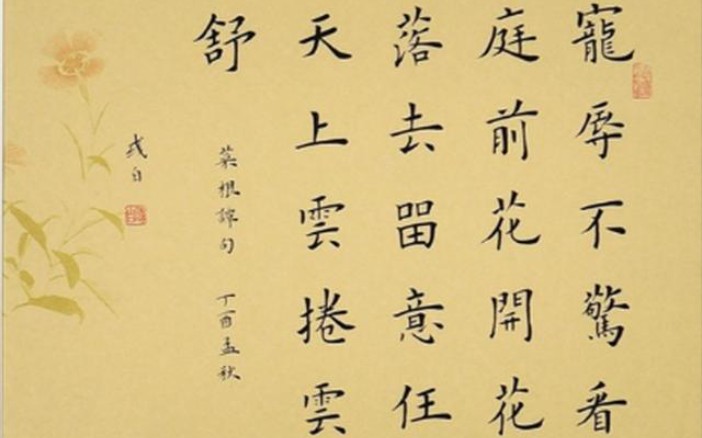 寵辱不驚看
庭前花開花
落去留意任
天上雲捲雲
舒
菜根譚句 丁酉孟秋
戎白